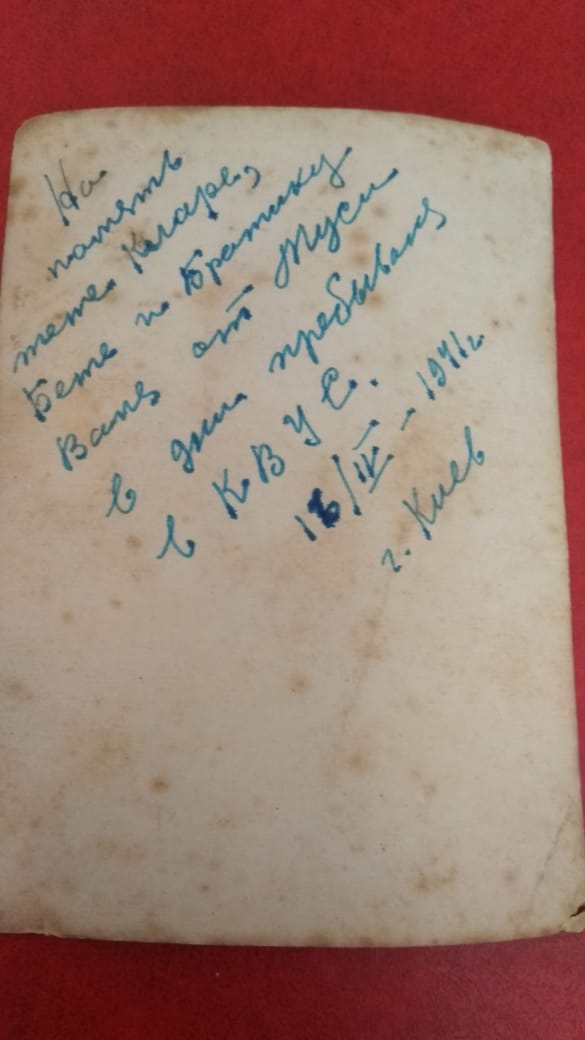 На
память
тете Кларе,
Бете и Братику
Ване от Муси
в дни пребываня
в К В У С.
/IV - 1941г.
г. Киев